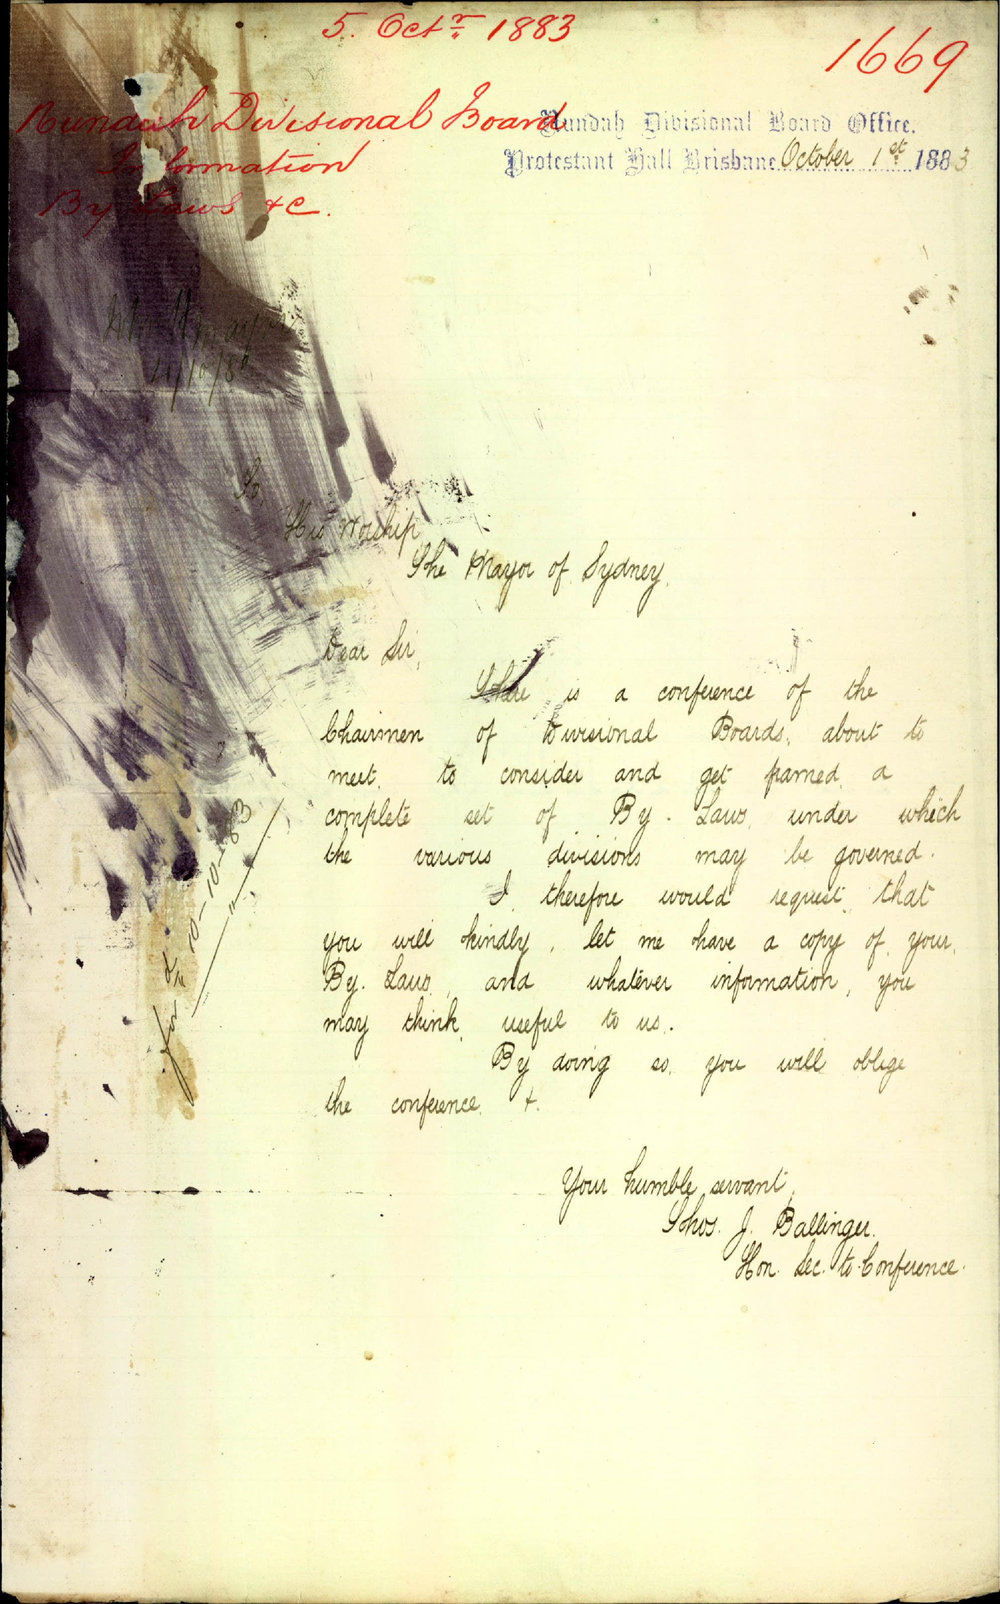 5. Octr 1883
1669
Nundah Divisional Board
Information
By Laws &c.
Nundah Divisional Board Office.
Protestant Hall Brisbane October 1st 1883
11/10/83
To,
His Worship,
The Mayor of Sydney,
Dear Sir,
There is a conference of the
Chairmen of Divisional Boards, about to
meet, to consider and get framed, a
complete set of By-Laws, under which
the various divisions may be governed.
I therefore would request, that
you will kindly, let me have a copy of your,
By-Laws, and whatever information, you
may think, useful to us.
By doing so, you will oblige
the conference &.
10-10-83
Your humble servant,
Thos. J. Ballinger.
Hon. Sec. to Conference.